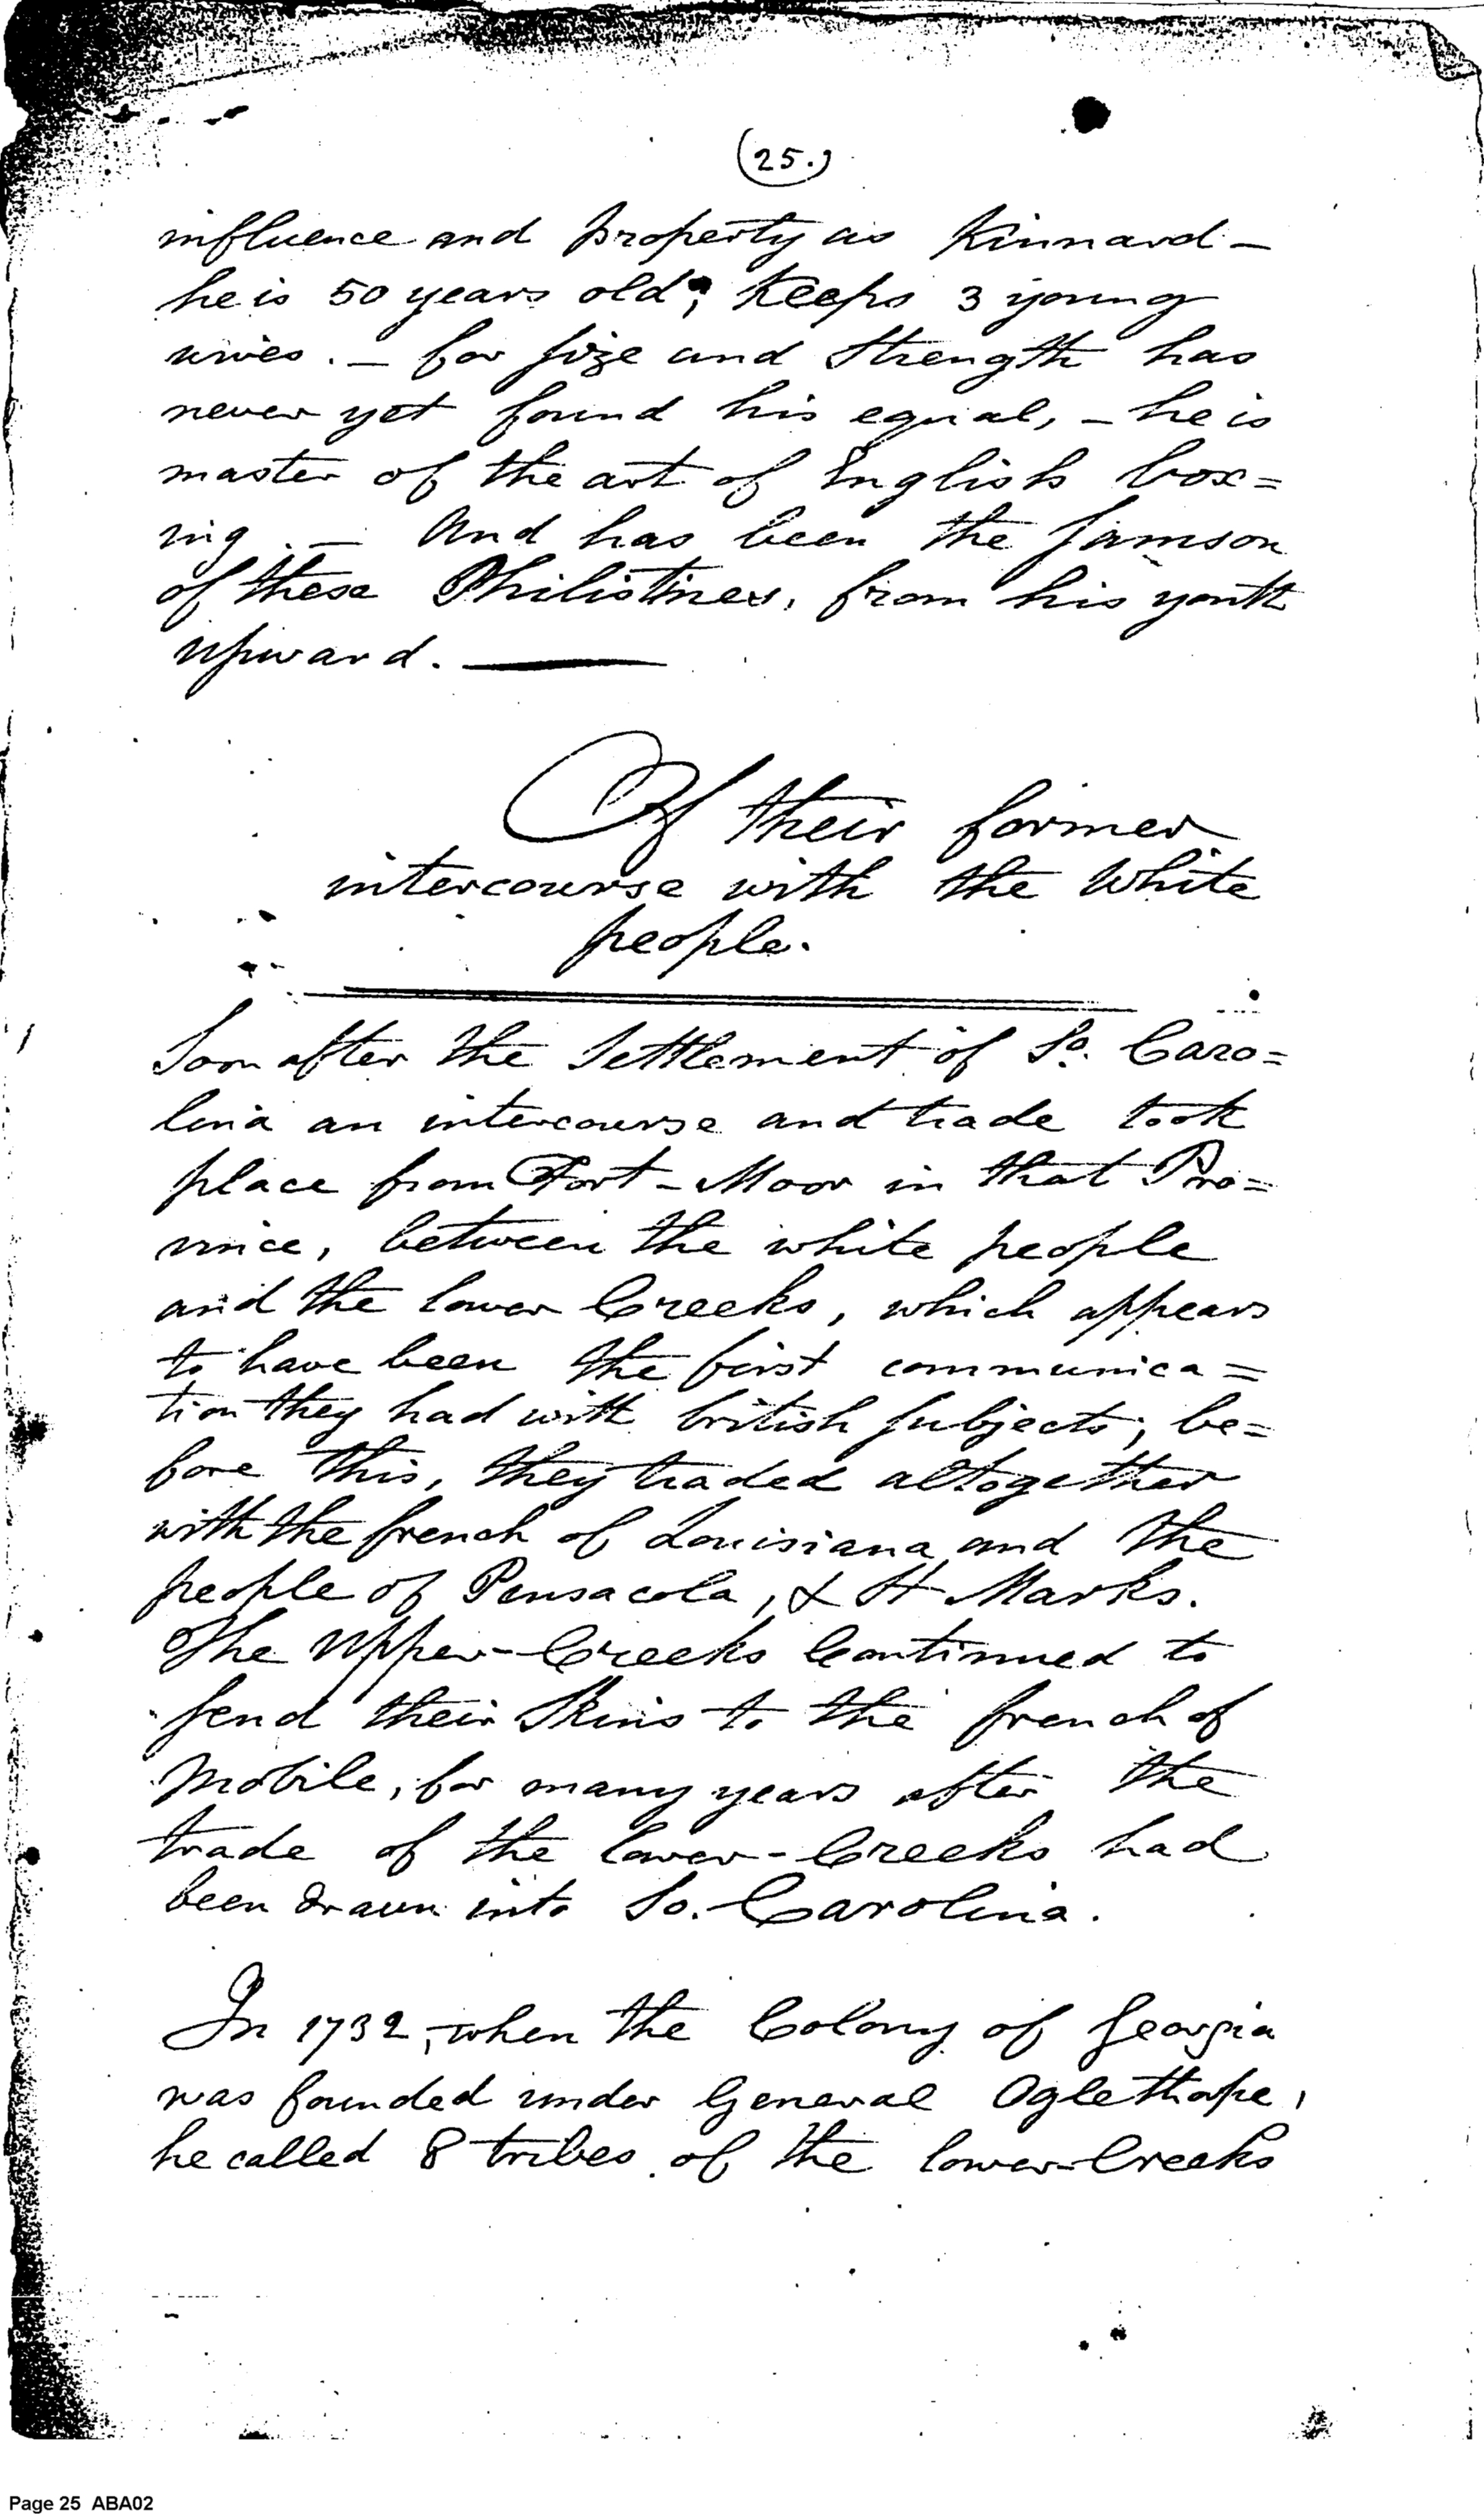 (25.)
influence and property as Kinnard —
he is 50 years old; Keeps 3 young
wives. — for size and Strength has
never yet found his equal, — he is
master of the art of English box=
ing. — And has been the Samson
of these Philistines, from his youth
upward. —
Of their former
intercourse with the White
people.
Soon after the Settlement of So. Caro=
lina an intercourse and trade took
place from Fort-Moor in that Pro=
vince, between the white people
and the lower Creeks, which appears
to have been the first communica=
tion they had with british subjects; be=
fore this, they traded altogether
with the french of Louisiana and the
people of Pensacola, & St Marks.
The Upper-Creeks Continued to
send their Skins to the french of
Mobile, for many years after the
trade of the lower-Creeks had
been drawn into So. Carolina.
In 1732, when the Colony of Georgia
was founded under General Oglethorpe,
he called 8 tribes of the lower-Creeks
Page 25 ABA02